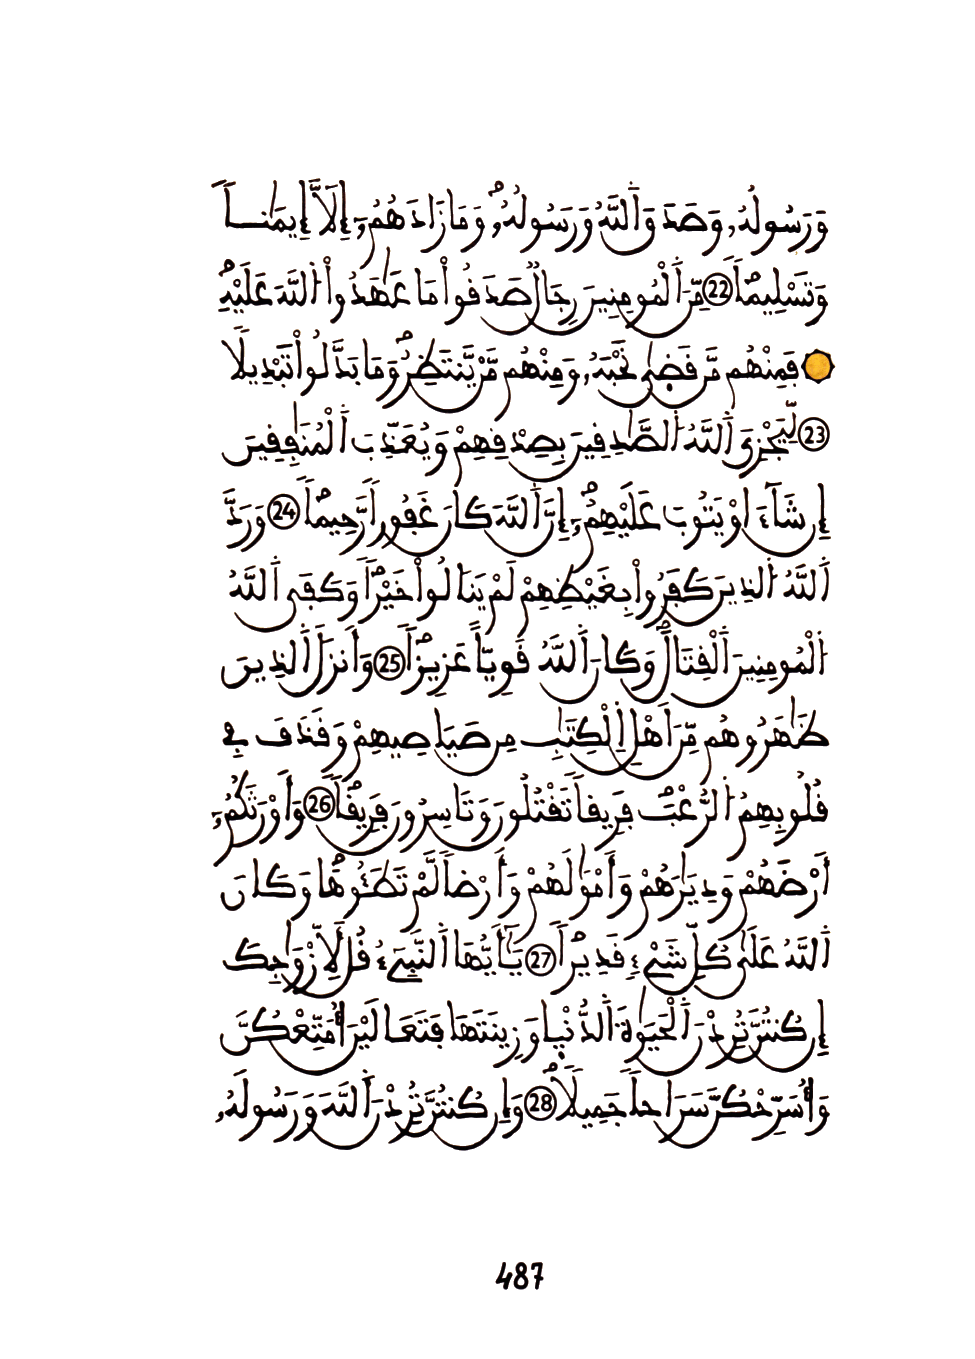 وَرَسُولُهُۥ وَصَدَقَ اَ۬للَّهُ وَرَسُولُهُۥۖ وَمَا زَادَهُمُۥٓ إِلَّآ إِيمَٰناٗ
وَتَسْلِيماٗۖ 22 مِّنَ اَ۬لْمُومِنِينَ رِجَالٞ صَدَقُواْ مَا عَٰهَدُواْ اُ۬للَّهَ عَلَيْهِۖ
فَمِنْهُم مَّن قَضَىٰ نَحْبَهُۥ وَمِنْهُم مَّنْ يَّنتَظِرُۖ وَمَا بَدَّلُواْ تَبْدِيلاٗ
23 لِّيَجْزِيَ اَ۬للَّهُ اُ۬لصَّٰدِقِينَ بِصِدْقِهِمْ وَيُعَذِّبَ اَ۬لْمُنَٰفِقِينَ
إِن شَآءَ اَوْ يَتُوبَ عَلَيْهِمُۥٓۖ إِنَّ اَ۬للَّهَ كَانَ غَفُوراٗ رَّحِيماٗۖ 24 وَرَدَّ
اَ۬للَّهُ اُ۬لذِينَ كَفَرُواْ بِغَيْظِهِمْ لَمْ يَنَالُواْ خَيْراٗۖ وَكَفَى اَ۬للَّهُ
اُ۬لْمُومِنِينَ اَ۬لْقِتَالَۖ وَكَانَ اَ۬للَّهُ قَوِيّاً عَزِيزاٗۖ 25 وَأَنزَلَ اَ۬لذِينَ
ظَٰهَرُوهُم مِّنَ اَهْلِ اِ۬لْكِتَٰبِ مِن صَيَاصِيهِمْ وَقَذَفَ فِے
قُلُوبِهِمُ اُ۬لرُّعْبَۖ فَرِيقاٗ تَقْتُلُونَ وَتَاسِرُونَ فَرِيقاٗۖ 26 وَأَوْرَثَكُمُۥٓ
أَرْضَهُمْ وَدِيَٰرَهُمْ وَأَمْوَٰلَهُمْ وَأَرْضاٗ لَّمْ تَطَـُٔوهَاۖ وَكَانَ
اَ۬للَّهُ عَلَىٰ كُلِّ شَےْءٖ قَدِيراٗۖ 27 يَٰٓأَيُّهَا اَ۬لنَّبِےٓءُ قُل لِّأَزْوَٰجِكَ
إِن كُنتُنَّ تُرِدْنَ اَ۬لْحَيَوٰةَ اَ۬لدُّنْي۪ا وَزِينَتَهَا فَتَعَالَيْنَ أُمَتِّعْكُنَّ
وَأُسَرِّحْكُنَّ سَرَاحاٗ جَمِيلاٗۖ 28 وَإِن كُنتُنَّ تُرِدْنَ اَ۬للَّهَ وَرَسُولَهُۥ
487